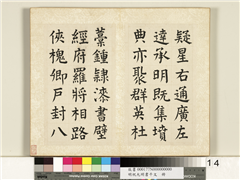 疑星右通廣左
達承明既集墳
典亦聚群英杜
藁鍾隸漆書壁
經府羅將相路
俠槐卿戶封八
14